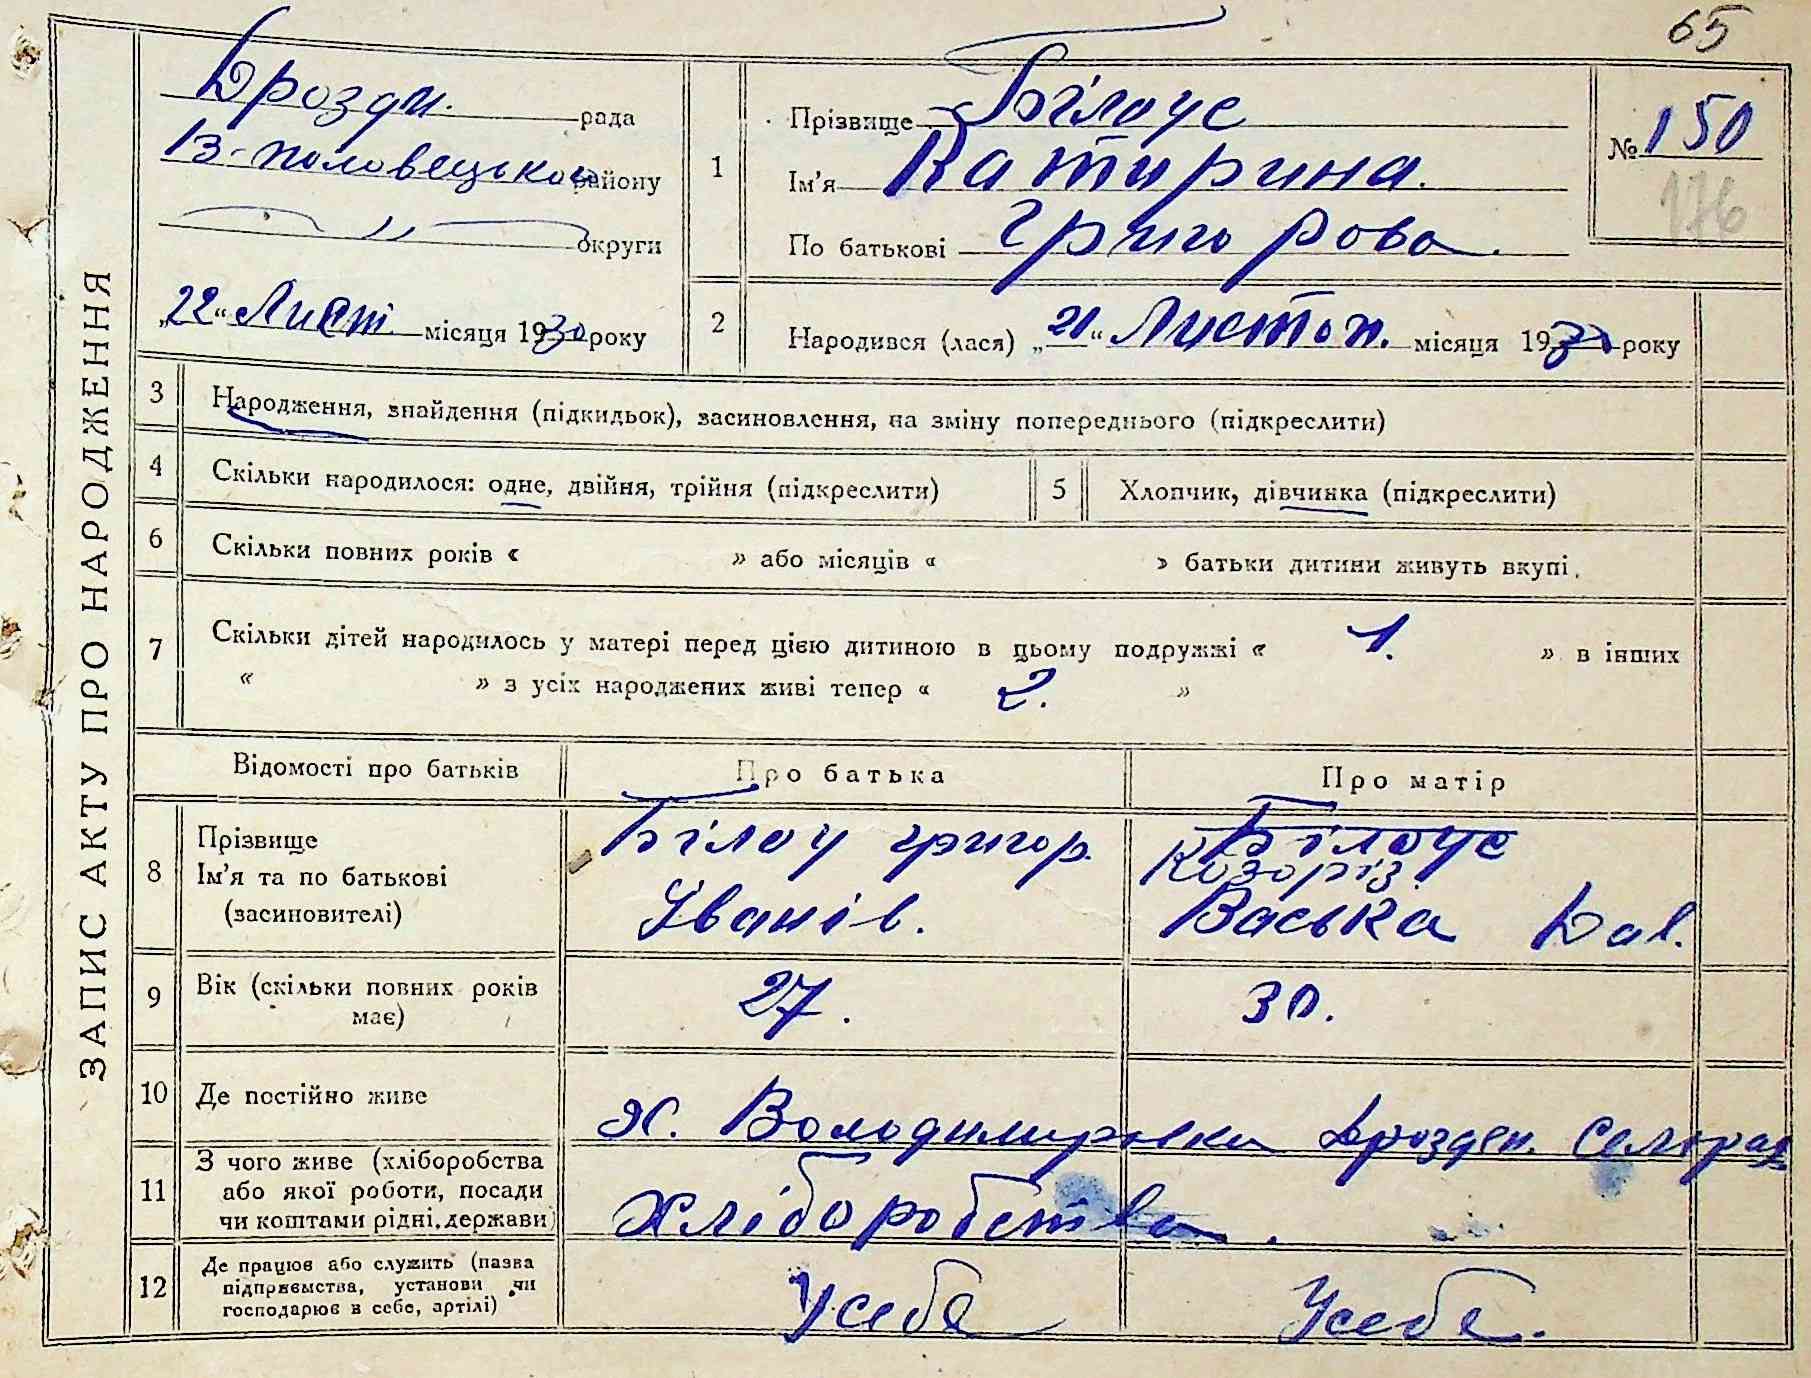 65
ЗАПИС АКТУ ПРО НАРОДЖЕННЯ
Дрозди. рада
В-половецького району
— „ — округи
„22“ Лист. місяця 1930 року
1
Прізвище Білоус
Ім'я Катирина.
По батькові Григорова.
№ 150
176
2
Народився (лася) „21“ Листоп. місяця 1930 року
3 Народження, знайдення (підкидьок), засиновлення, на зміну попереднього (підкреслити)
4 Скільки народилося: одне, двійня, трійня (підкреслити)
5 Хлопчик, дівчинка (підкреслити)
6 Скільки повних років « » або місяців « » батьки дитини живуть вкупі.
7 Скільки дітей народилось у матері перед цією дитиною в цьому подружжі « 1. » в інших
« » з усіх народжених живі тепер « 2. »
Відомості про батьків Про батька Про матір
8 Прізвище
Ім'я та по батькові
(засиновителі)
Білоу Григор.
Іванів.
Білоус
Козоріз
Васька Дав.
9 Вік (скільки повних років
має)
27.
30.
10 Де постійно живе
х. Володимировка Дрозден. Сельрад
11 З чого живе (хліборобства
або якої роботи, посади
чи коштами рідні, держави)
Хліборобства.
12 Де працює або служить (назва
підприємства, установи чи
господарює в себе, артілі)
Усебе
Усебе.